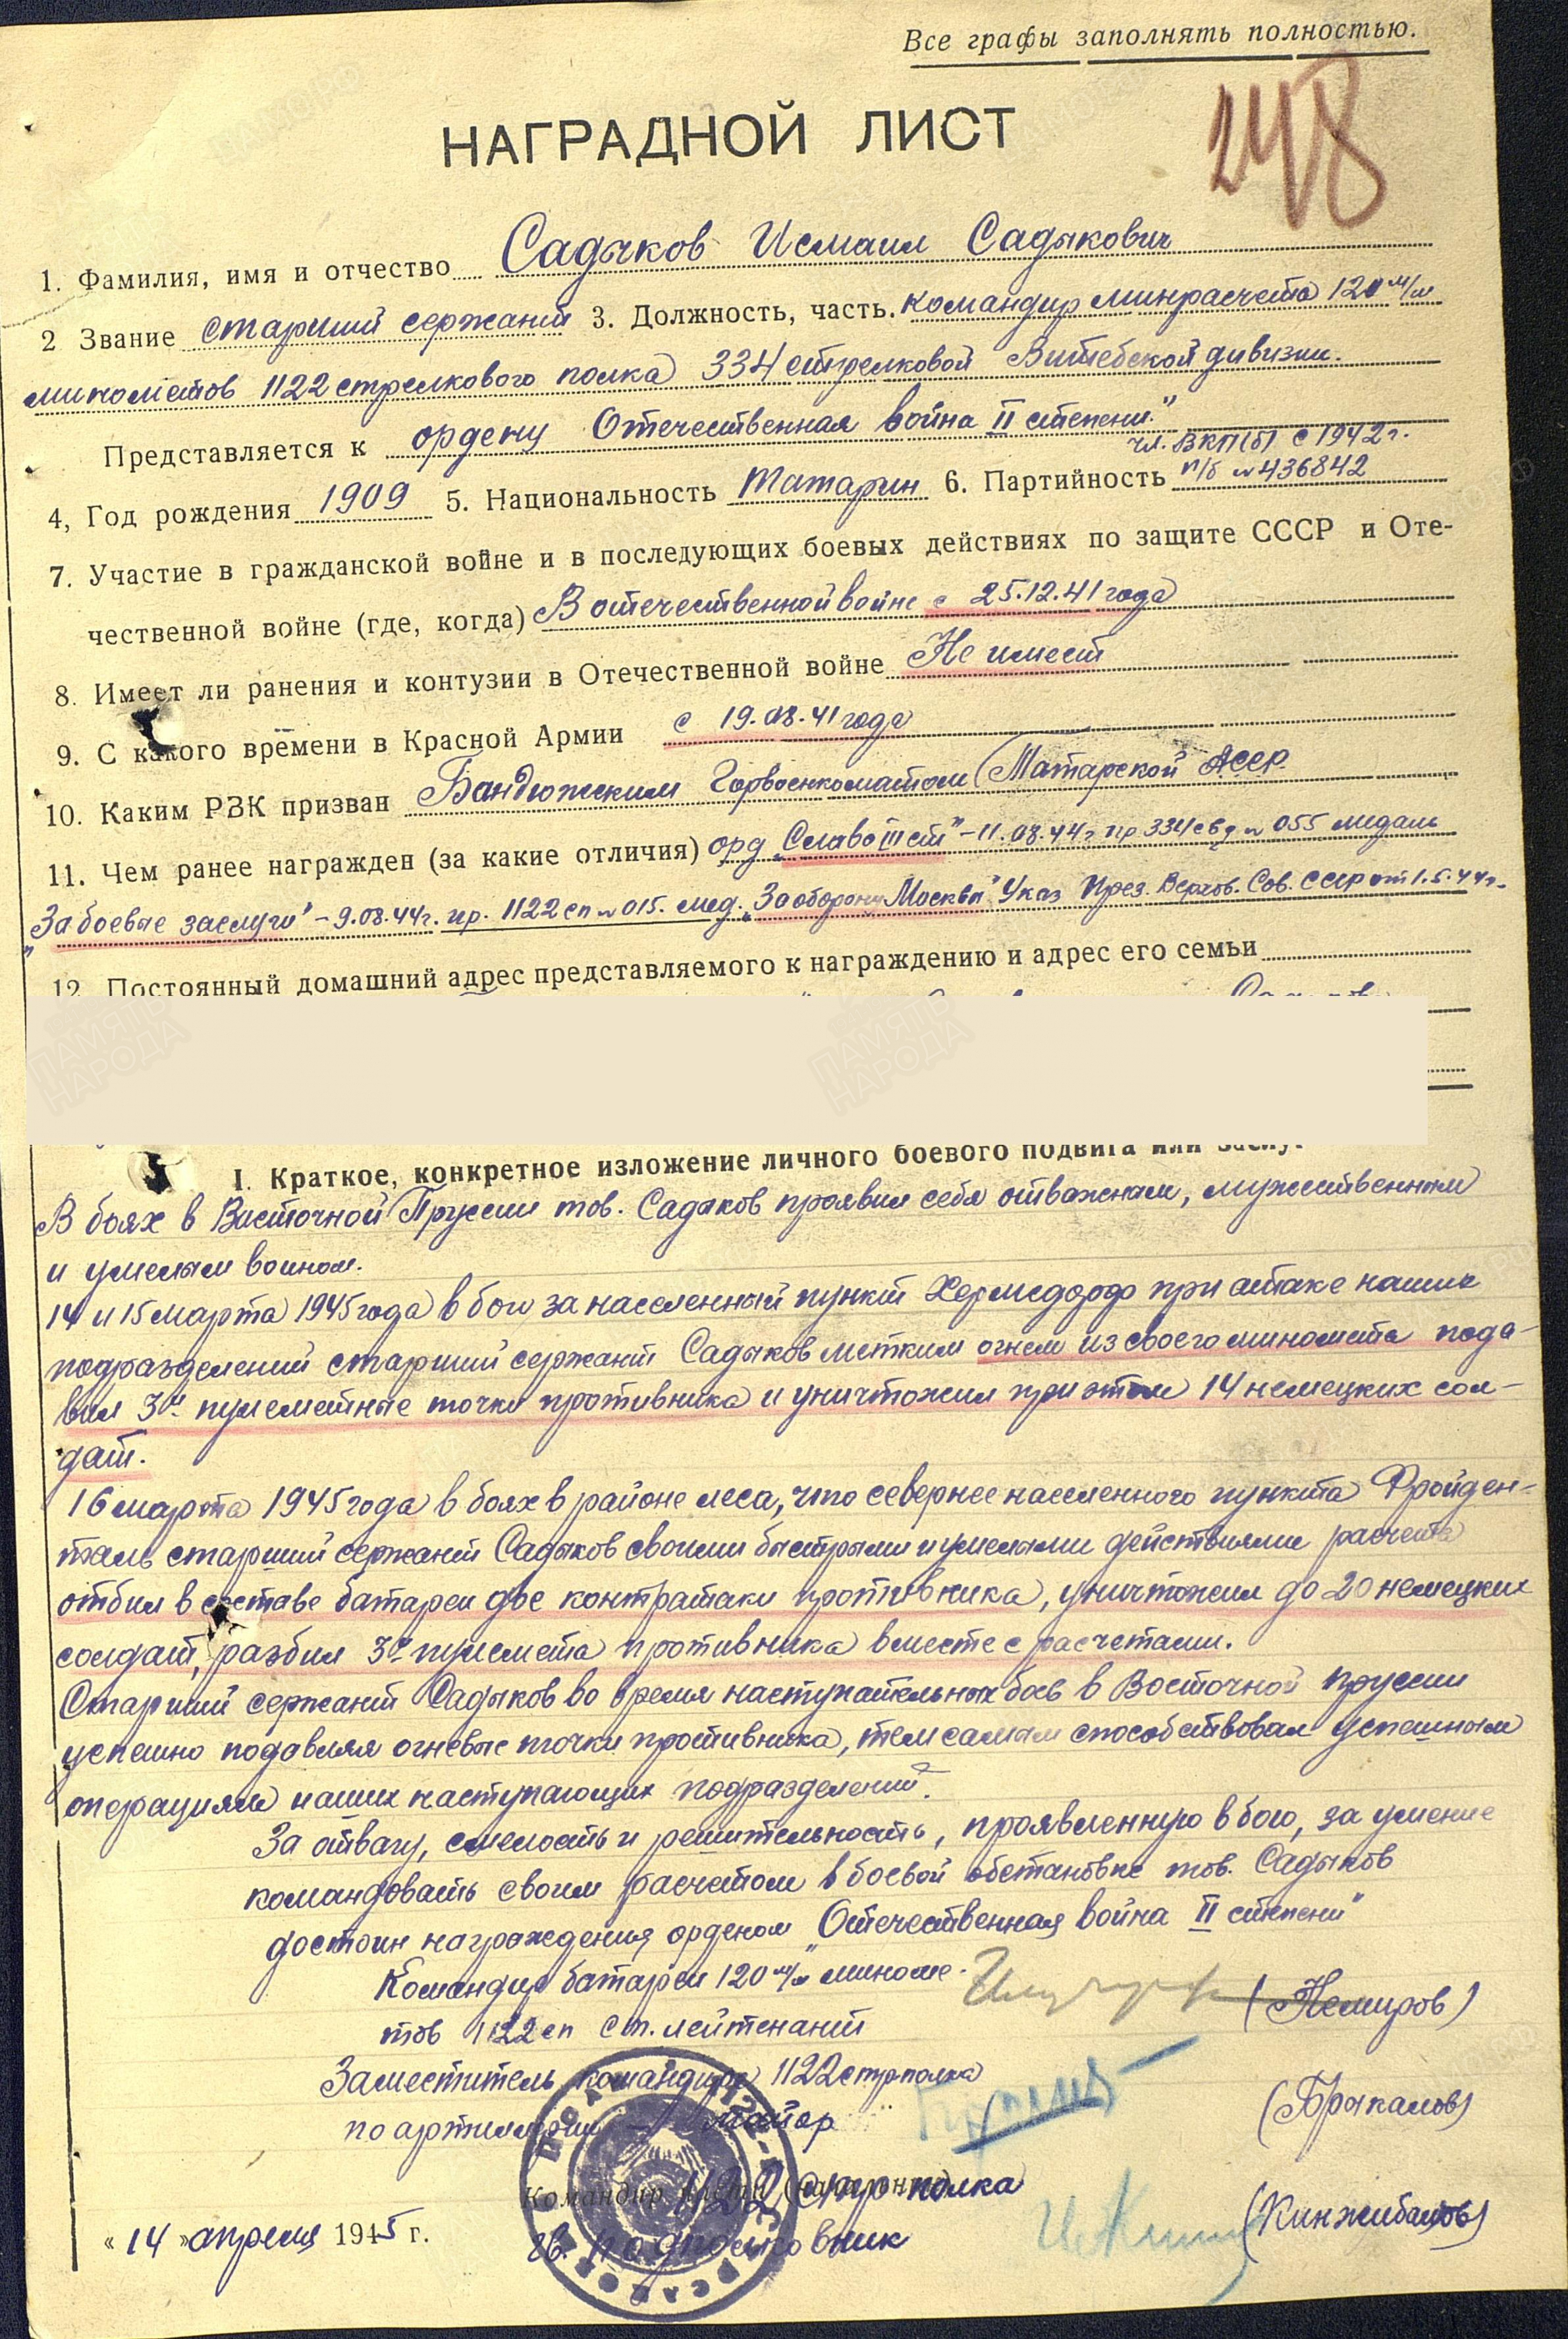 Все графы заполнять полностью.
248
НАГРАДНОЙ ЛИСТ
1. Фамилия, имя и отчество Садыков Исмаил Садыкович
2 Звание старший сержант 3. Должность, часть. командир минрасчета 120 м/м
минометов 1122 стрелкового полка 334 стрелковой Витебской дивизии.
Представляется к ордену Отечественная война II степени"
чл. ВКП(б) с 1942 г.
4, Год рождения 1909 5. Национальность татарин 6. Партийность п/б № 436842
7. Участие в гражданской войне и в последующих боевых действиях по защите СССР и Оте-
чественной войне (где, когда) В отечественной войне с 25.12.41 года
8. Имеет ли ранения и контузии в Отечественной войне Не имеет
9. С какого времени в Красной Армии с 19.08.41 года
10. Каким РВК призван Бондюжским Горвоенкоматом Татарской АССР
11. Чем ранее награжден (за какие отличия) орд „Слава III ст" – 11.08.44 г пр 334 сд № 055 медаль
„За боевые заслуги" – 9.08.44г. пр. 1122 сп № 015. мед. „За оборону Москвы" Указ През. Верхов. Сов. СССР от 1.5.44г.
12. Постоянный домашний адрес представляемого к награждению и адрес его семьи
ПАМЯТЬ НАРОДА
ПАМЯТЬ НАРОДА
I. Краткое, конкретное изложение личного боевого подвига или заслуг
В боях в Восточной Пруссии тов. Садыков проявил себя отважным, мужественным
и умелым воином.
14 и 15 марта 1945 года в бою за населенный пункт Хермсдорф при атаке наших
подразделений старший сержант Садыков метким огнем из своего миномета пода-
вил 3и пулеметные точки противника и уничтожил при этом 14 немецких сол-
дат.
16 марта 1945 года в боях в районе леса, что севернее населенного пункта Фройден-
таль старший сержант Садыков своими быстрыми и умелыми действиями расчета
отбил в составе батареи две контратаки противника, уничтожил до 20 немецких
солдат, разбил 3и пулемета противника вместе с расчетами.
Старший сержант Садыков во время наступательных боев в Восточной Пруссии
успешно подавлял огневые точки противника, тем самым способствовал успешным
операциям наших наступающих подразделений.
За отвагу, смелость и решительность, проявленную в бою, за умение
командовать своим расчетом в боевой обстановке тов. Садыков
достоин награждения орденом „Отечественная война II степени"
Командир батареи 120 м/м миноме-
тов 1122 сп ст. лейтенант (Немиров)
Заместитель командира 1122 стр полка
по артиллерии – майор (Брыкалов)
Командир части (начальник) 1122 стр полка
« 14 » апреля 1945 г. гв. подполковник (Кинжибалов)